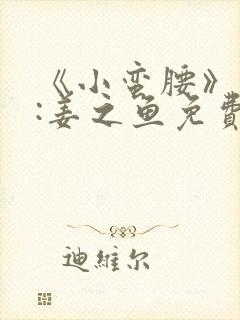 《小蛮腰》
:姜之鱼免費
迪維尔